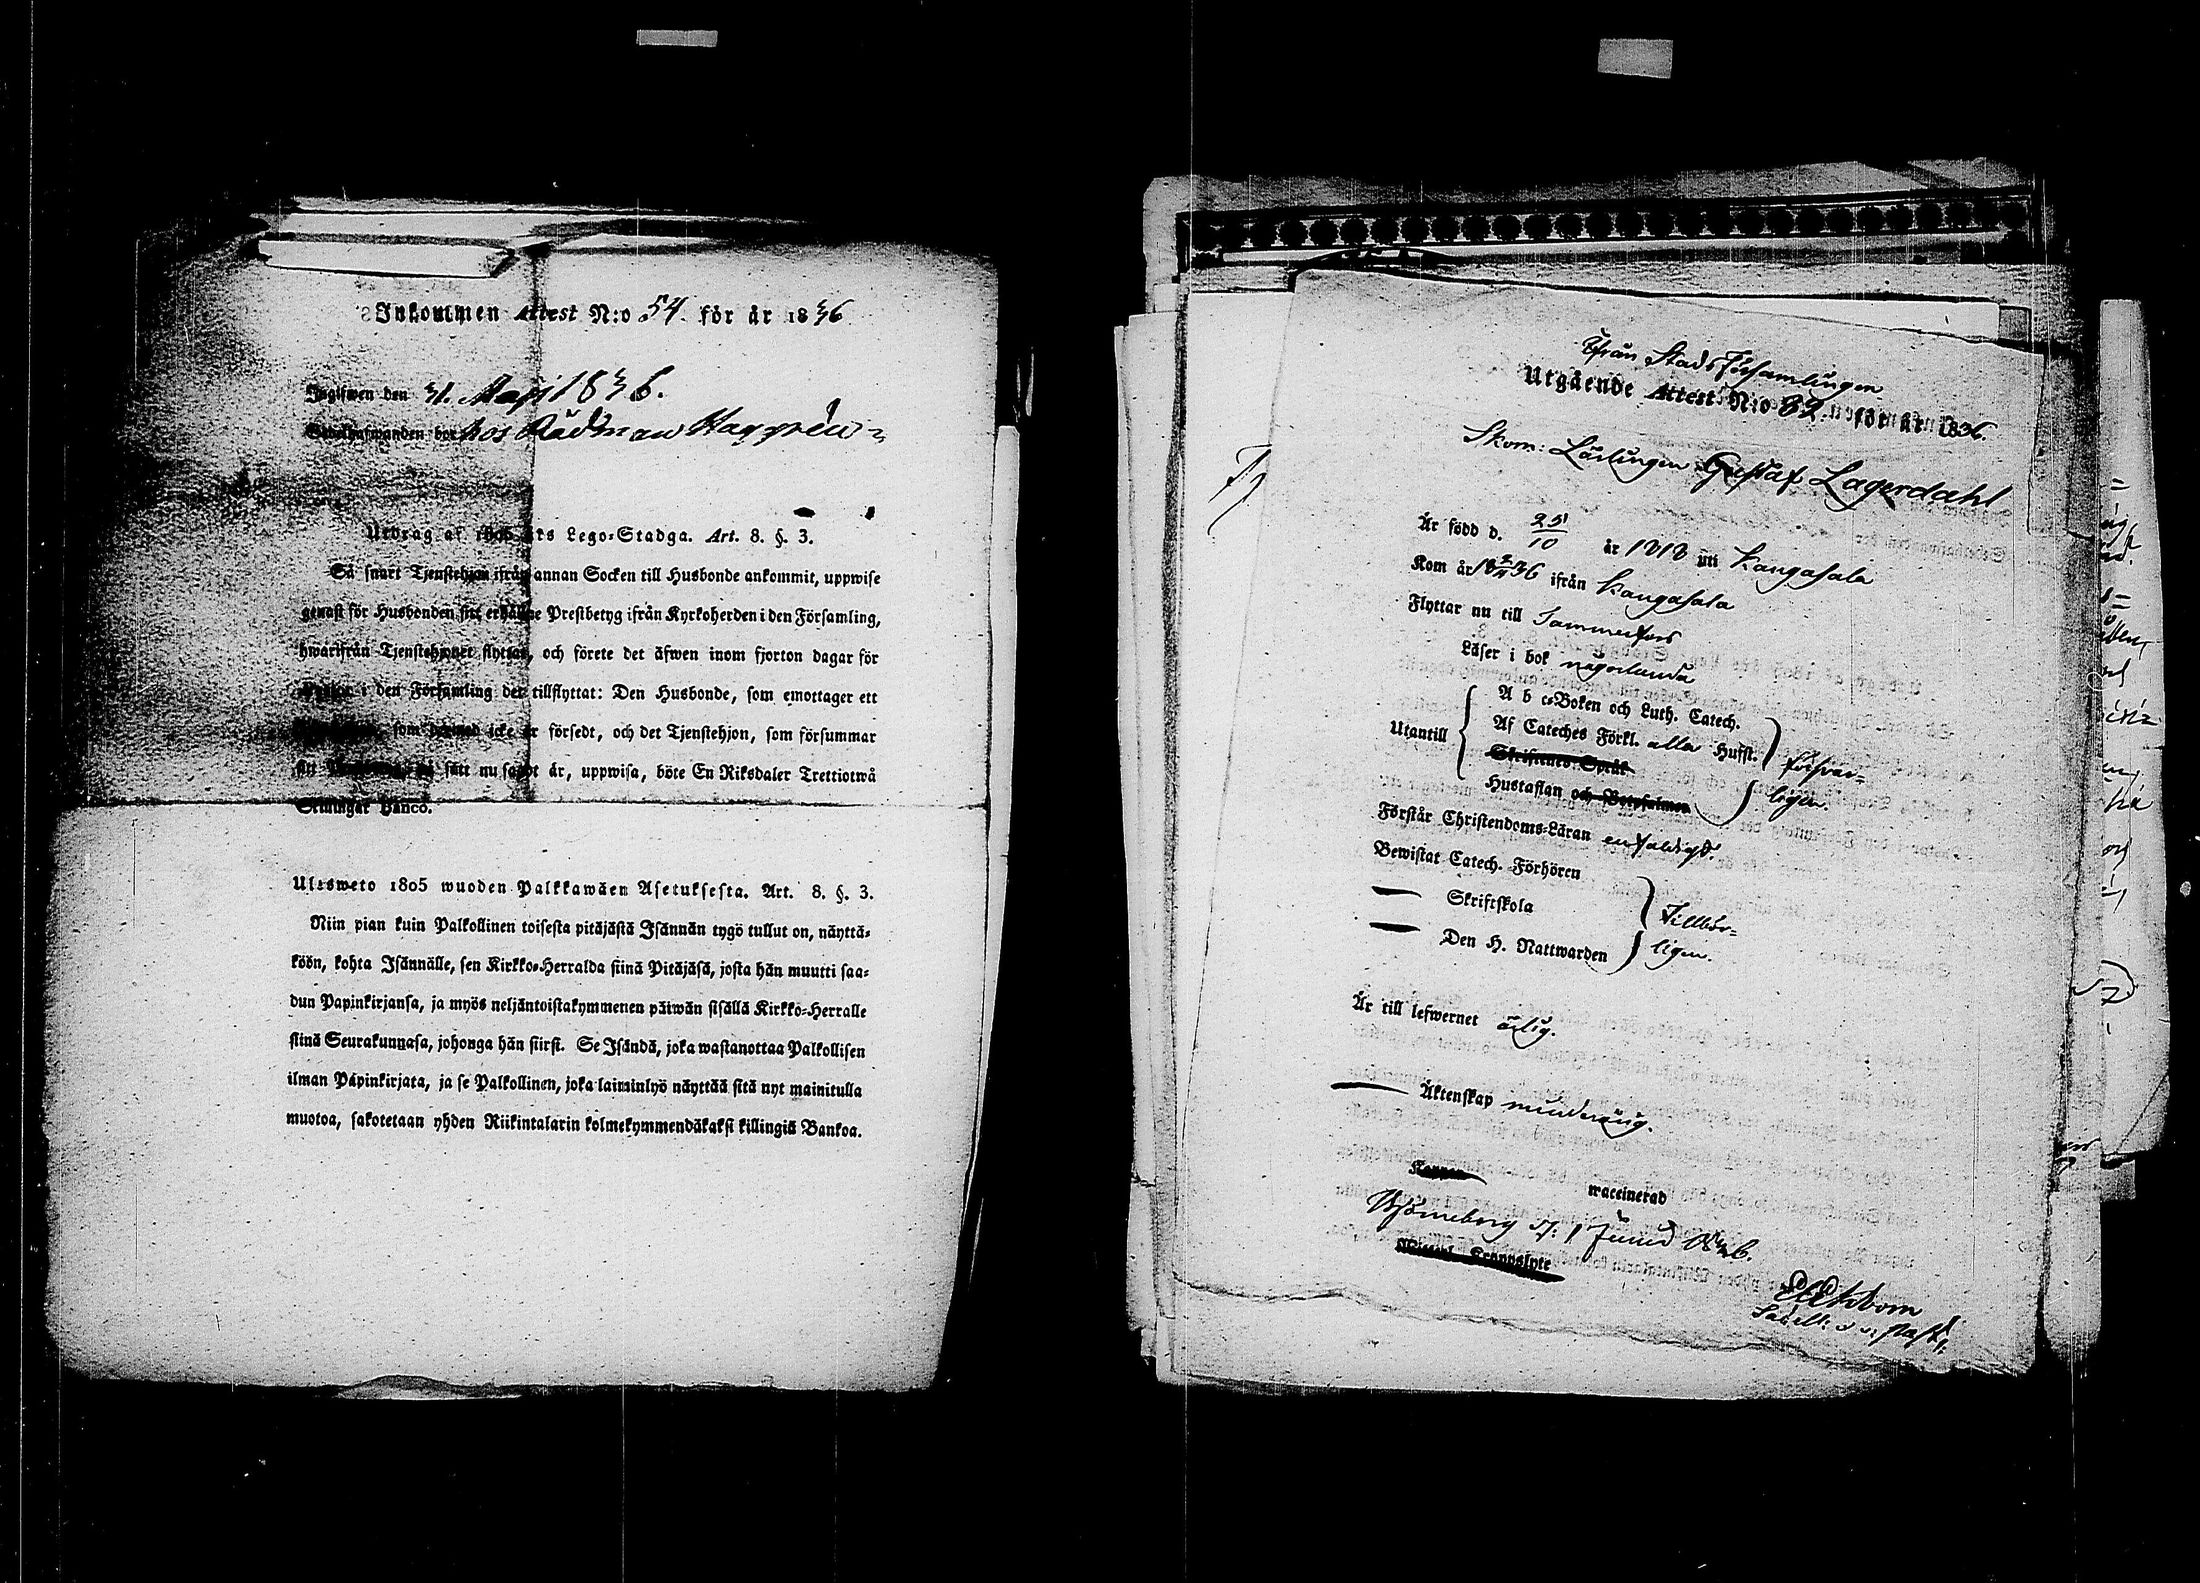 Inkommen Attest N:o 54 för år 1836
Ingifwen den 31. Maji 1836.
hos Rådman Haggrén
Utdrag af 1805 års Lego-Stadga. Art. 8. §. 3.
Så snart Tjenstehjon ifrån annan Socken till Husbonde ankommit, uppwise
genast för Husbonden sitt erhållne Prestbetyg ifrån Kyrkoherden i den Församling,
hwarifrån Tjenstehjonet flyttat, och förete det äfwen inom fjorton dagar för
i den Församling det tillflyttat: Den Husbonde, som emottager ett
som dermed icke är försedt, och det Tjenstehjon, som försummar
att på sätt nu sagdt är, uppwisa, böte En Riksdaler Trettiotwå
Skillingar Banco.
Ulosweto 1805 wuoden Palkkawäen Asetuksesta. Art. 8. §. 3.
Niin pian kuin Palkollinen toisesta pitäjästä Isännän tygö tullut on, näyttä-
köön, kohta Isännälle, sen Kirkko-Herralda siinä Pitäjäsä, josta hän muutti saa-
dun Papinkirjansa, ja myös neljäntoistakymmenen päiwän sisällä Kirkko-Herralle
siinä Seurakunnasa, johonga hän siirsi. Se Isändä, joka wastanottaa Palkollisen
ilman Papinkirjata, ja se Palkollinen, joka laiminlyö näyttää sitä nyt mainitulla
muotoa, sakotetaan yhden Riikintalarin kolmekymmendäkaksi killingiä Bankoa.
Ifrån Stads Församlingen
Utgående Attest N:o 82. för år 1836.
Skom: Lärlingen Gustaf Lagerdahl
Är född d. 25/10 år 1818 uti Kangasala
Kom år 1836 ifrån Kangasala
Flyttar nu till Tammerfors
Läser i bok någorlunda
A b c-Boken och Luth. Catech.
Utantill Af Cateches Förkl. alla Hufst. försvar-
Skriftenes Språk
Hustaflan och Botpsalmer ligen.
Förstår Christendoms-Läran enfaldigt.
Bewistat Catech. Förhören
— Skriftskola Tillbör-
— Den H. Nattwarden ligen.
Är till lefwernet ärlig.
— Äktenskap minderårig.
Koppor waccinerad
Björneborg d: 1 Junii 1836.